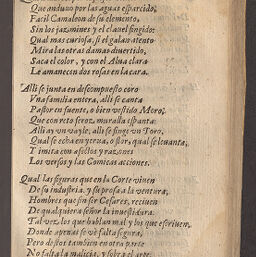 Que anduvo por las aguas esparcido,
Facil Camaleon de su elemento,
Sin los jazmines y el clavel fingido:
Qual mas curiosa, si el galan atento
Mira las otras damas divertido,
Saca el color, y con el Alva clara
Le amanecen dos rosas en la cara.
Alli se junta en descompuesto coro
Vna familia entera, alli se canta
Pastor en fuente, o bien vestido Moro,
Que con reto feroz, muralla espanta:
Alli ay un vayle, alli se finge un Toro,
Qual se echa en yerva, o flor, qual se levanta,
Y imita con afectos y razones
Los versos y las Comicas acciones.
Qual las figuras que en la Corte vinen
De su industria, y su prosa a la ventura,
Hombres que sin ser Cesares, reciven
De qualquiera señor la investidura.
Tal vez, los que hablan mal y los que escriven,
Donde apenas se vè falta segura,
Pero destos tambien en otra parte
No falta la malicia, y sobra el arte.